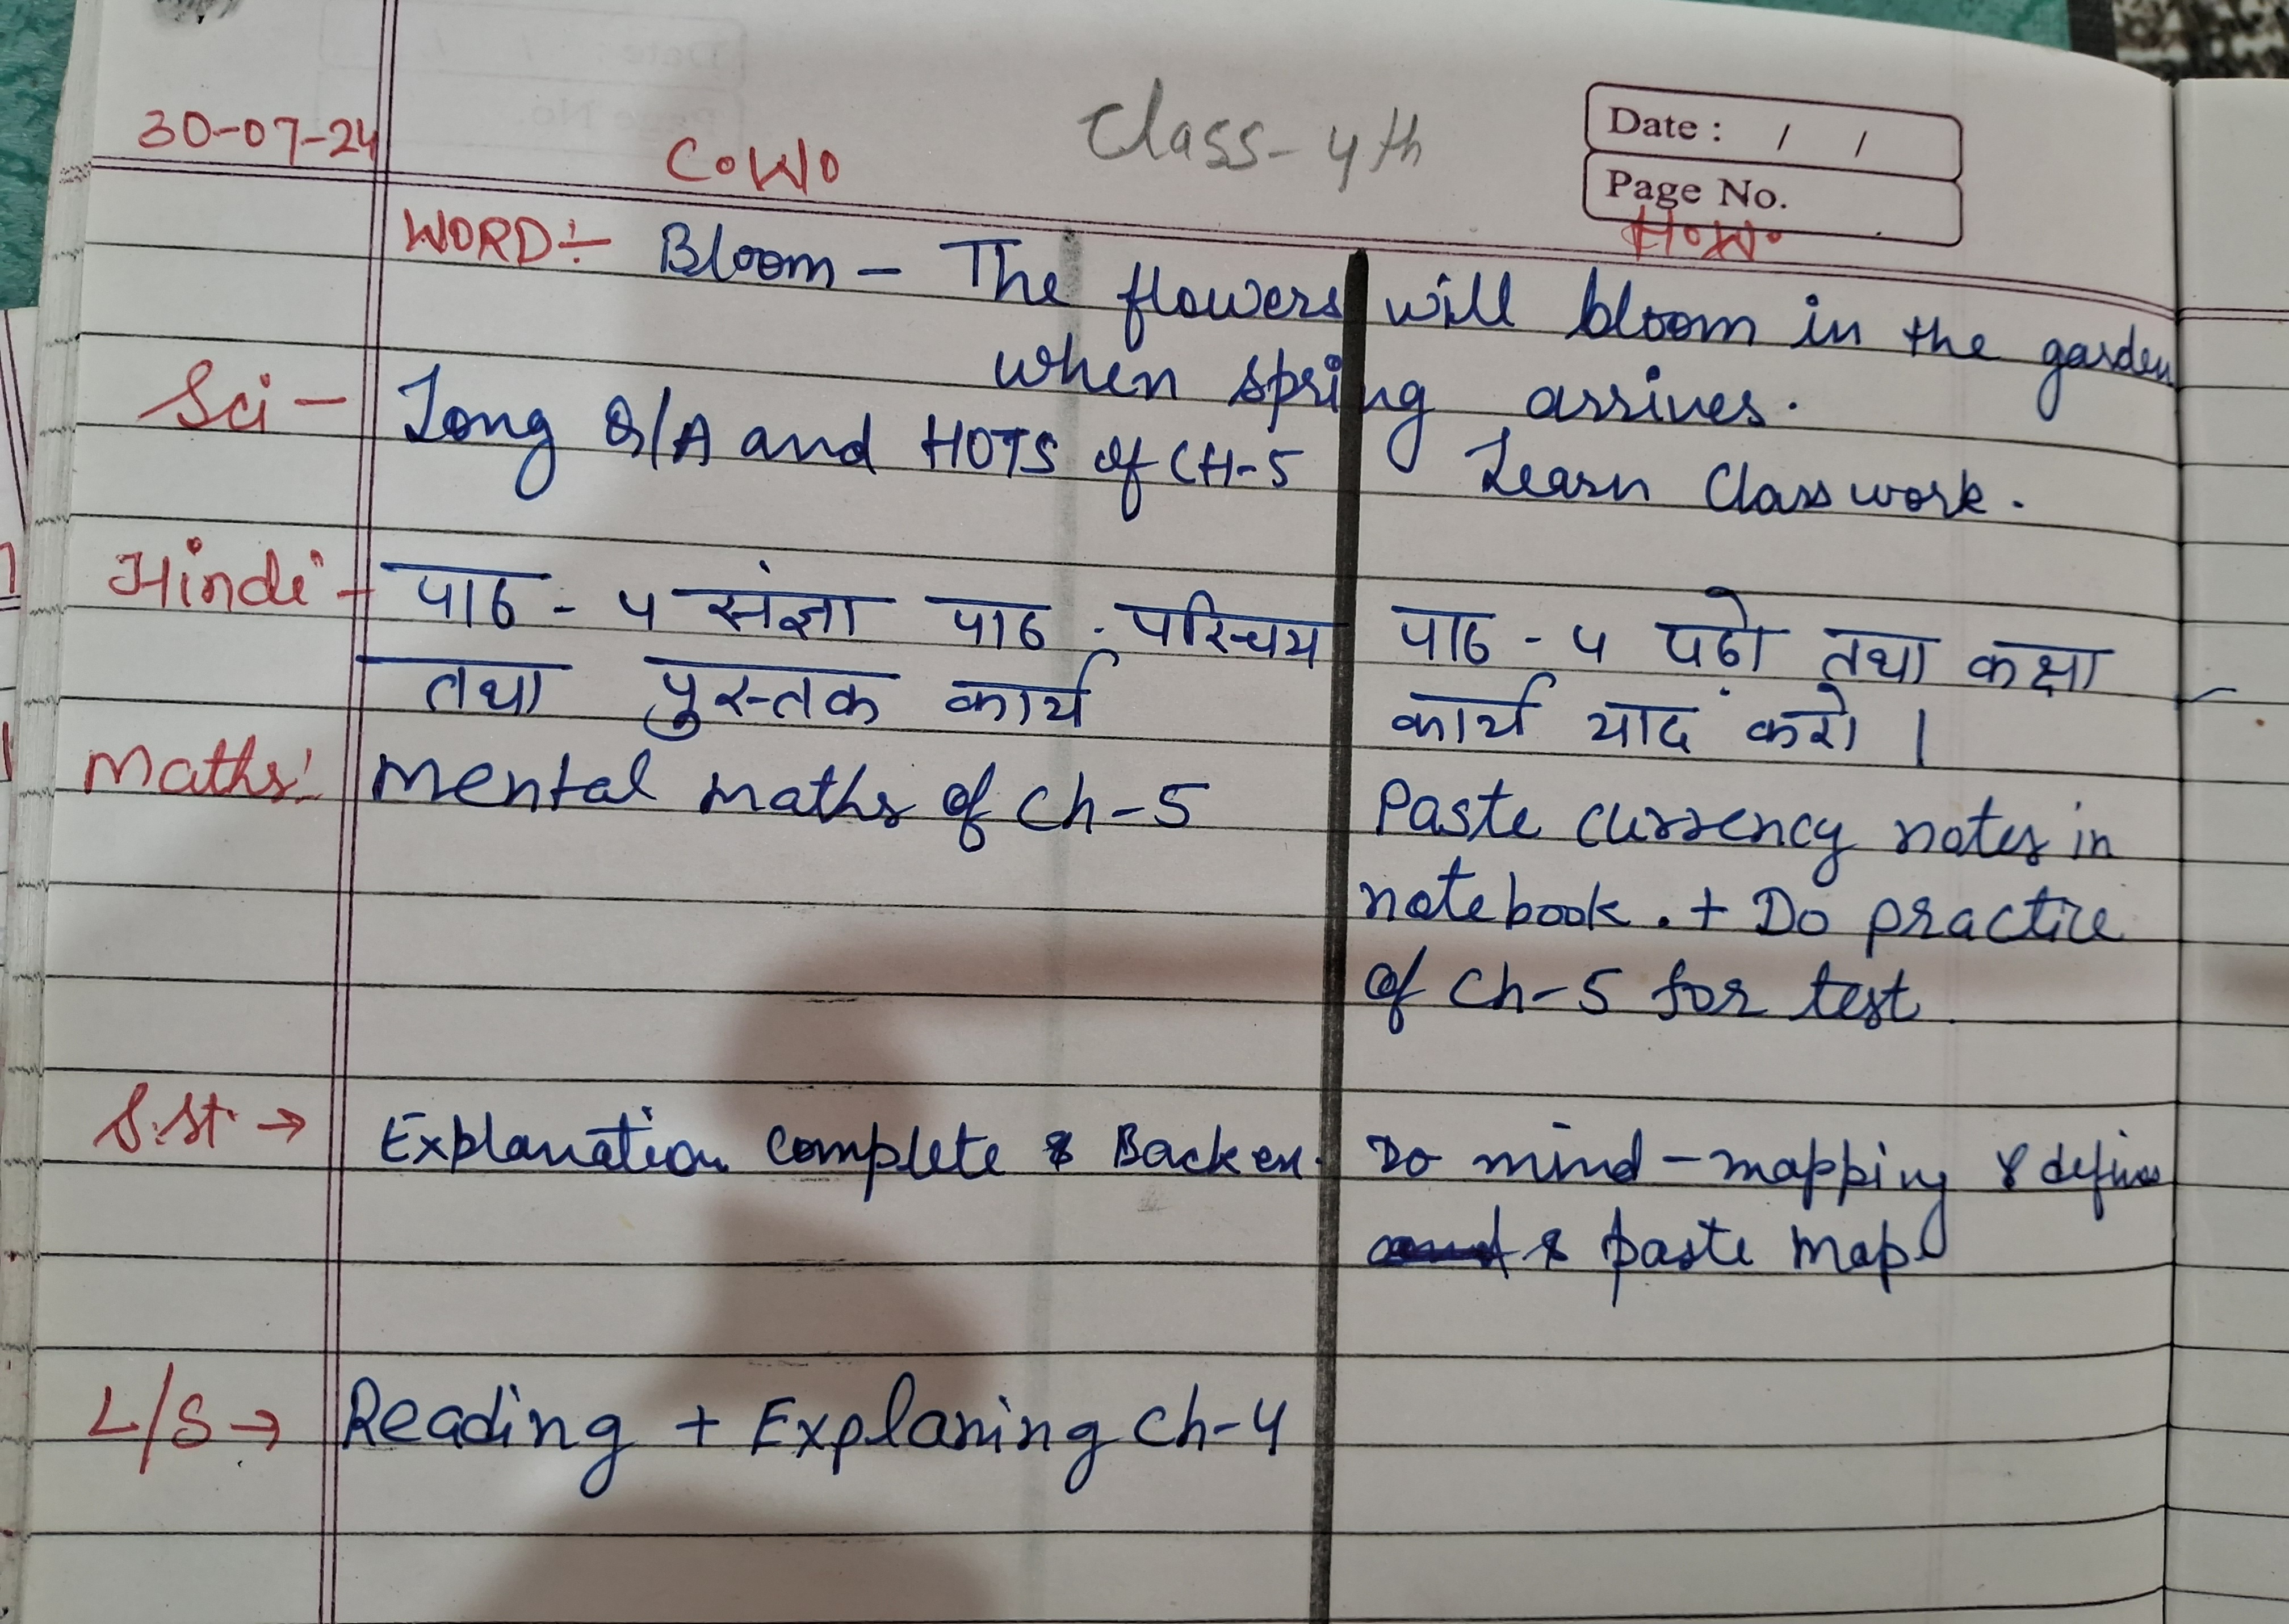 30-07-24 C.W. Class-4th Date : / /
Page No.
H.W.
WORD:- Bloom - The flowers will bloom in the garden
when spring arrives.
Sci - Long Q/A and HOTS of CH-5 Learn Class work.
Hindi - पाठ - 5 संज्ञा पाठ - परिचय पाठ - 5 पढो तथा कक्षा
तथा पुस्तक कार्य कार्य याद करो |
Maths: Mental maths of Ch-5 Paste currency notes in
notebook. + Do practice
of Ch-5 for test
S.st → Explanation complete & Back ex. Do mind-mapping & define
& paste map
L/S → Reading + Explaning Ch-4